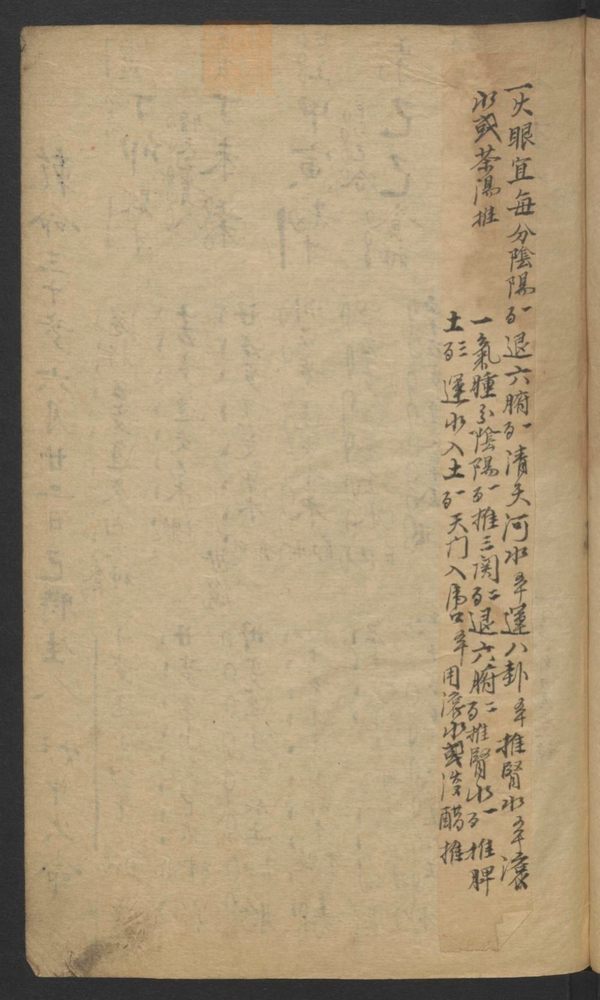 一火眼宜每分陰陽一百退六腑一百清天河水五十運八卦五十推腎水五十滾
水或茶湯推
一氣腫分陰陽一百推三関二百退六腑二百推腎水一百推脾
土三百運水入土一百天门入虎口五十用滾水或醋推